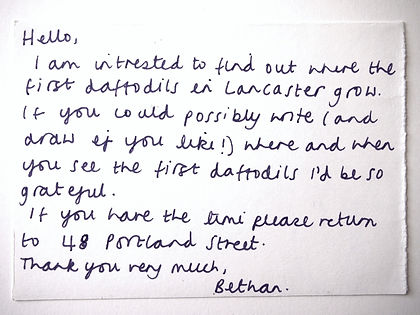 Hello,
I am intrested to find out where the
first daffodils in Lancaster grow.
If you could possibly write (and
draw if you like!) where and when
you see the first daffodils I'd be so
grateful.
If you have the time please return
to 48 Portland Street.
Thank you very much,
Bethan.